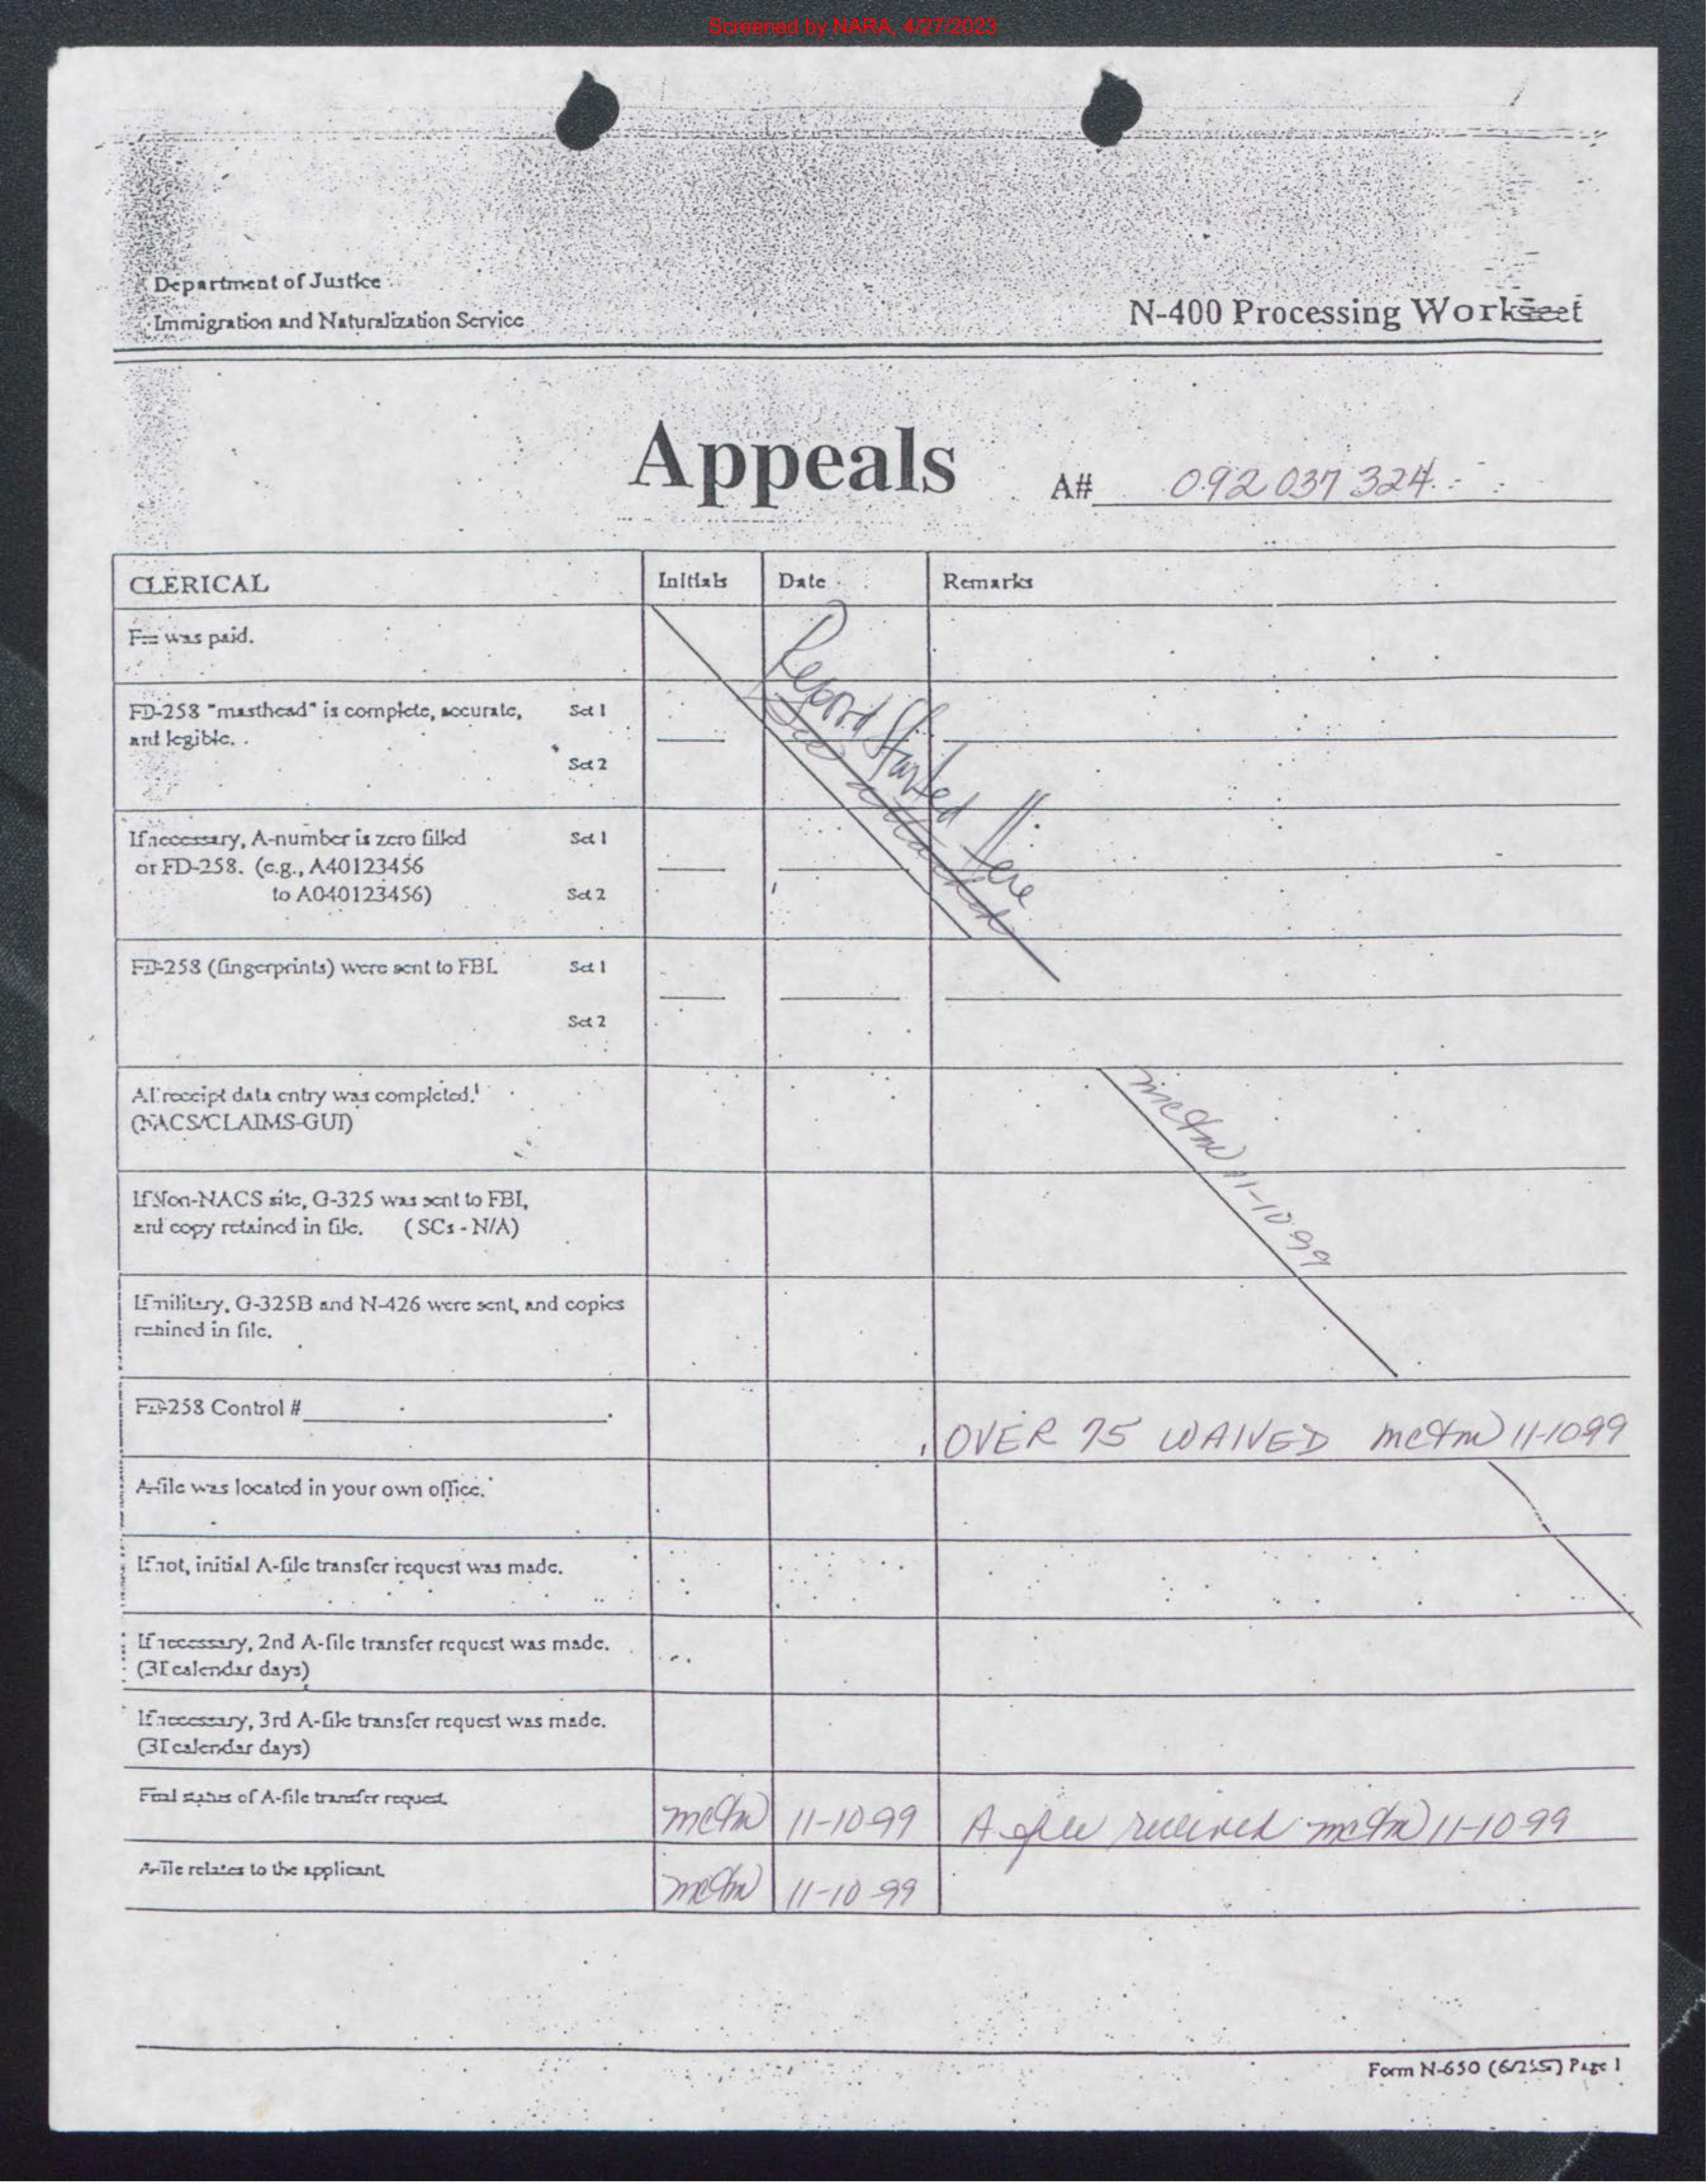 Screened by NARA, 4/27/2023
Department of Justice
Immigration and Naturalization Service
N-400 Processing Worksheet
Appeals
A# 092 037 324
CLERICAL
Initials
Date
Remarks
Fee was paid.
Record Started Here
See attached
FD-258 "masthead" is complete, accurate, Set 1
and legible.
Set 2
If necessary, A-number is zero filled Set 1
or FD-258. (e.g., A40123456
to A040123456) Set 2
FD-258 (fingerprints) were sent to FBI. Set 1
Set 2
All receipt data entry was completed.
(NACS/CLAIMS-GUI)
11-10-99
If Non-NACS site, G-325 was sent to FBI,
and copy retained in file. (SCs - N/A)
If military, G-325B and N-426 were sent, and copies
retained in file.
FD-258 Control #
OVER 75 WAIVED 11-10 99
A-file was located in your own office.
If not, initial A-file transfer request was made.
If necessary, 2nd A-file transfer request was made.
(31 calendar days)
If necessary, 3rd A-file transfer request was made.
(31 calendar days)
Final status of A-file transfer request.
11-10-99
A file received 11-10 99
A-file relates to the applicant.
11-10-99
Form N-650 Page 1